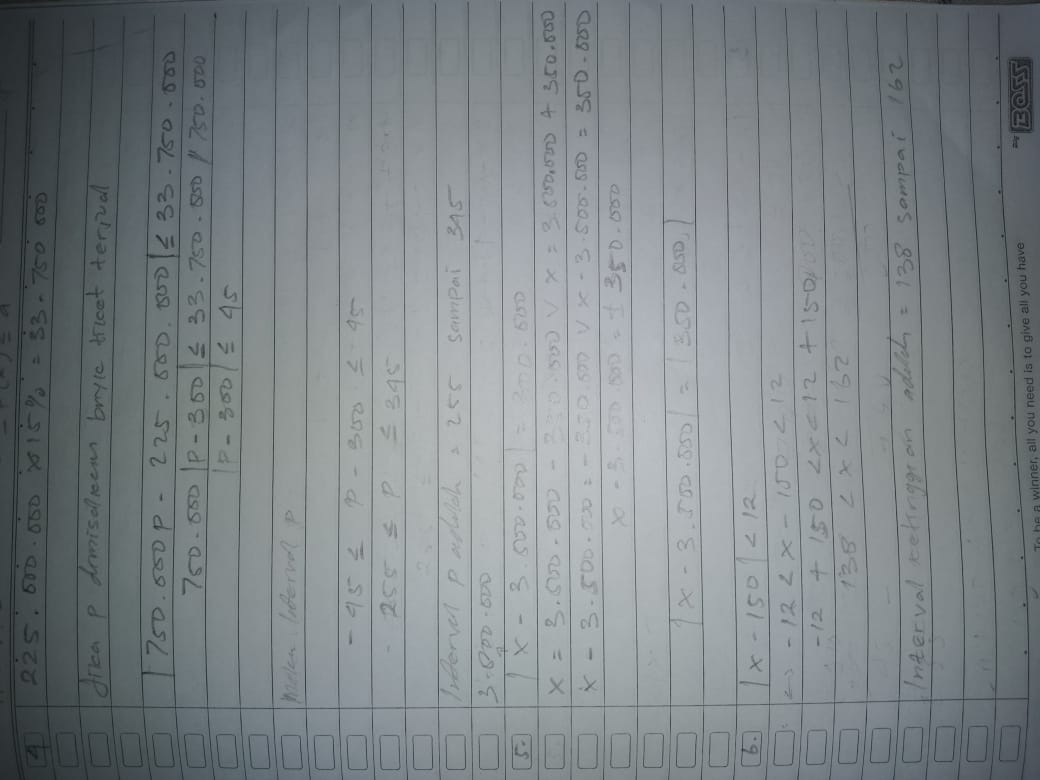 4 225.000.000 x 15% = 33.750.000
Jika P dimisalkan bnyk tiket terjual
|750.000P - 225.000.000| ≤ 33.750.000
750.000 |P-300| ≤ 33.750.000 / 750.000
|P-300| ≤ 45
Interval P
-45 ≤ P - 300 ≤ 45
255 ≤ P ≤ 345
Interval P adalah = 255 sampai 345
3.500.000
5. |x - 3.500.000| = 350.000
x = 3.500.000 - 350.000 V x = 3.500.000 + 350.000
x - 3.500.000 = -350.000 V x - 3.500.000 = 350.000
x - 3.500.000 = ± 350.000
|x - 3.500.000| = |350.000|
6. |x - 150| < 12
<-> -12 < x - 150 < 12
-12 + 150 < x < 12 + 150
138 < x < 162
Interval ketinggian adalah = 138 sampai 162
To be a winner, all you need is to give all you have
BOSS